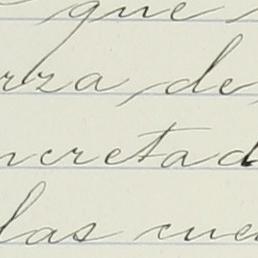 que
rza de
ncretad
las cue